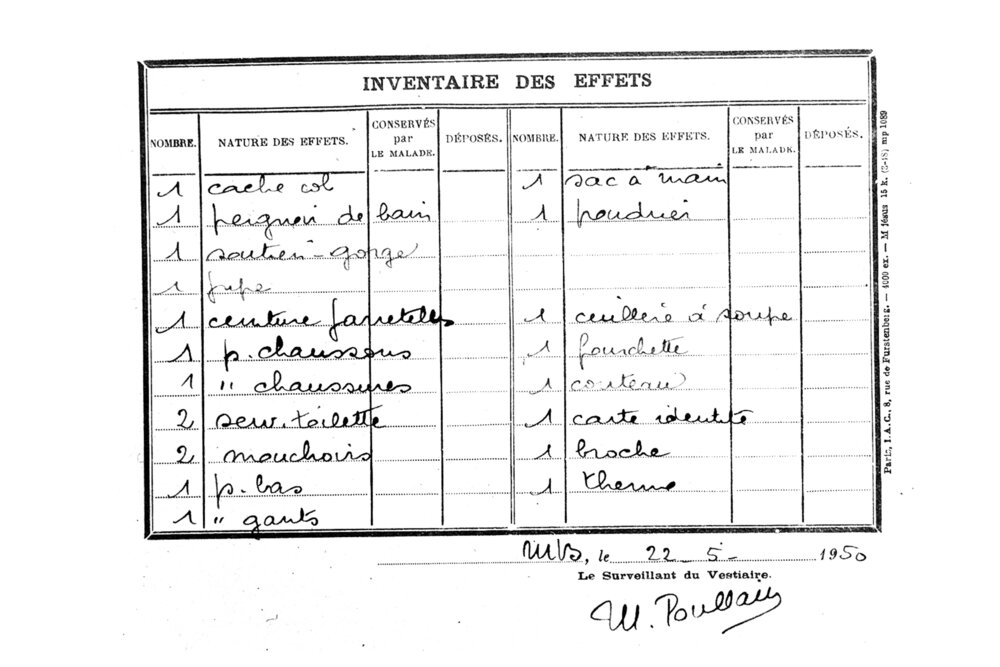 INVENTAIRE DES EFFETS
NOMBRE. NATURE DES EFFETS. CONSERVÉS par LE MALADE. DÉPOSÉS. NOMBRE. NATURE DES EFFETS. CONSERVÉS par LE MALADE. DÉPOSÉS.
1 cache col 1 sac à main
1 peignoir de bain 1 poudrier
1 soutien-gorge
1 jupe
1 ceinture jarretelles 1 cuillère à soupe
1 p. chaussons 1 fourchette
1 " chaussures 1 couteau
2 serv. toilette 1 carte identité
2 mouchoirs 1 broche
1 p. bas 1 thermo
1 " gants
le 22-5-1950
Le Surveillant du Vestiaire.
M. Poullain
Paris, I.A.C., 8, rue de Furstenberg. — 4000 ex. — M jésus 15 k. mp 1089